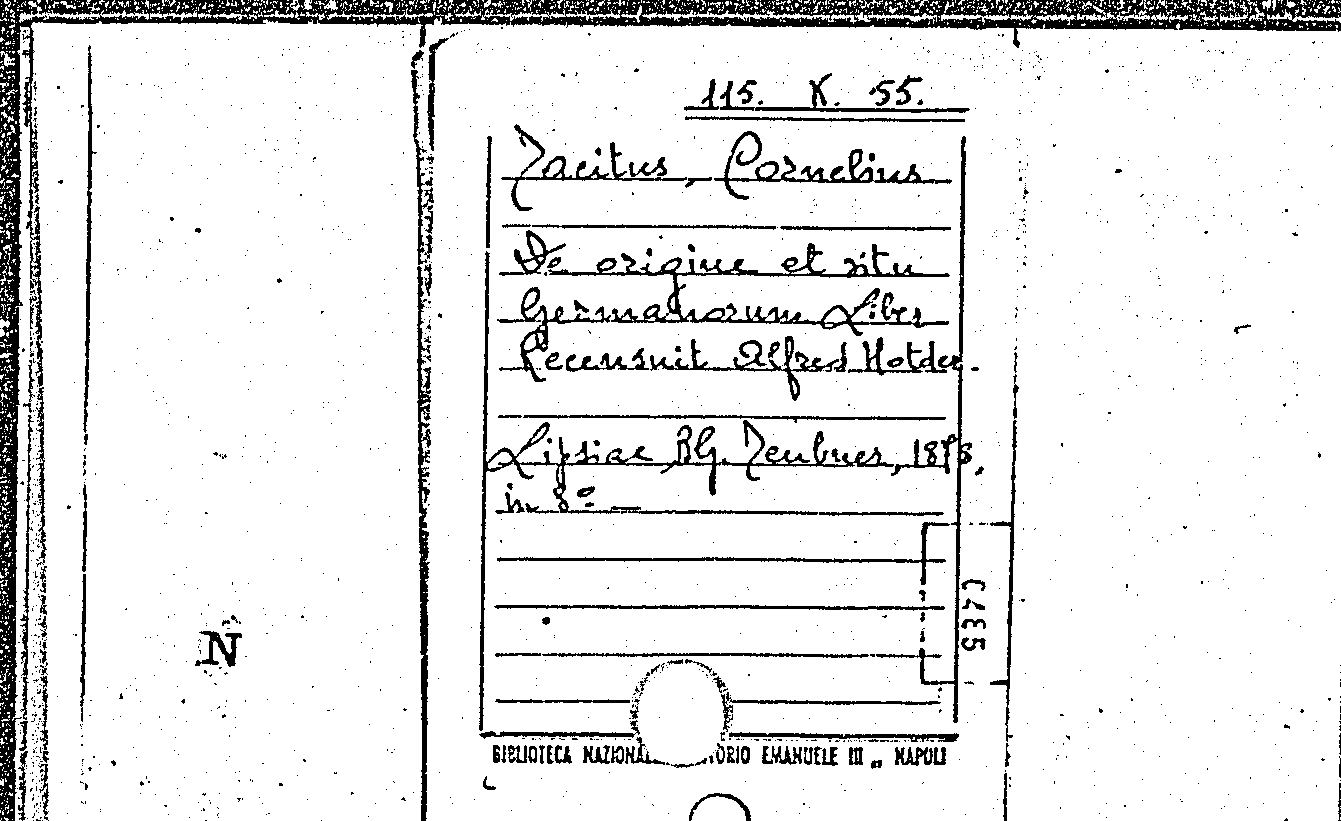 115. K. 55.
Tacitus, Cornelius
De origine et situ
Germanorum Liber
Recensuit Alfred Holder.
Lipsiae, B.G. Teubner, 1878,
in 8º —
N
BIBLIOTECA NAZIONA TORIO EMANUELE III „ NAPOLI